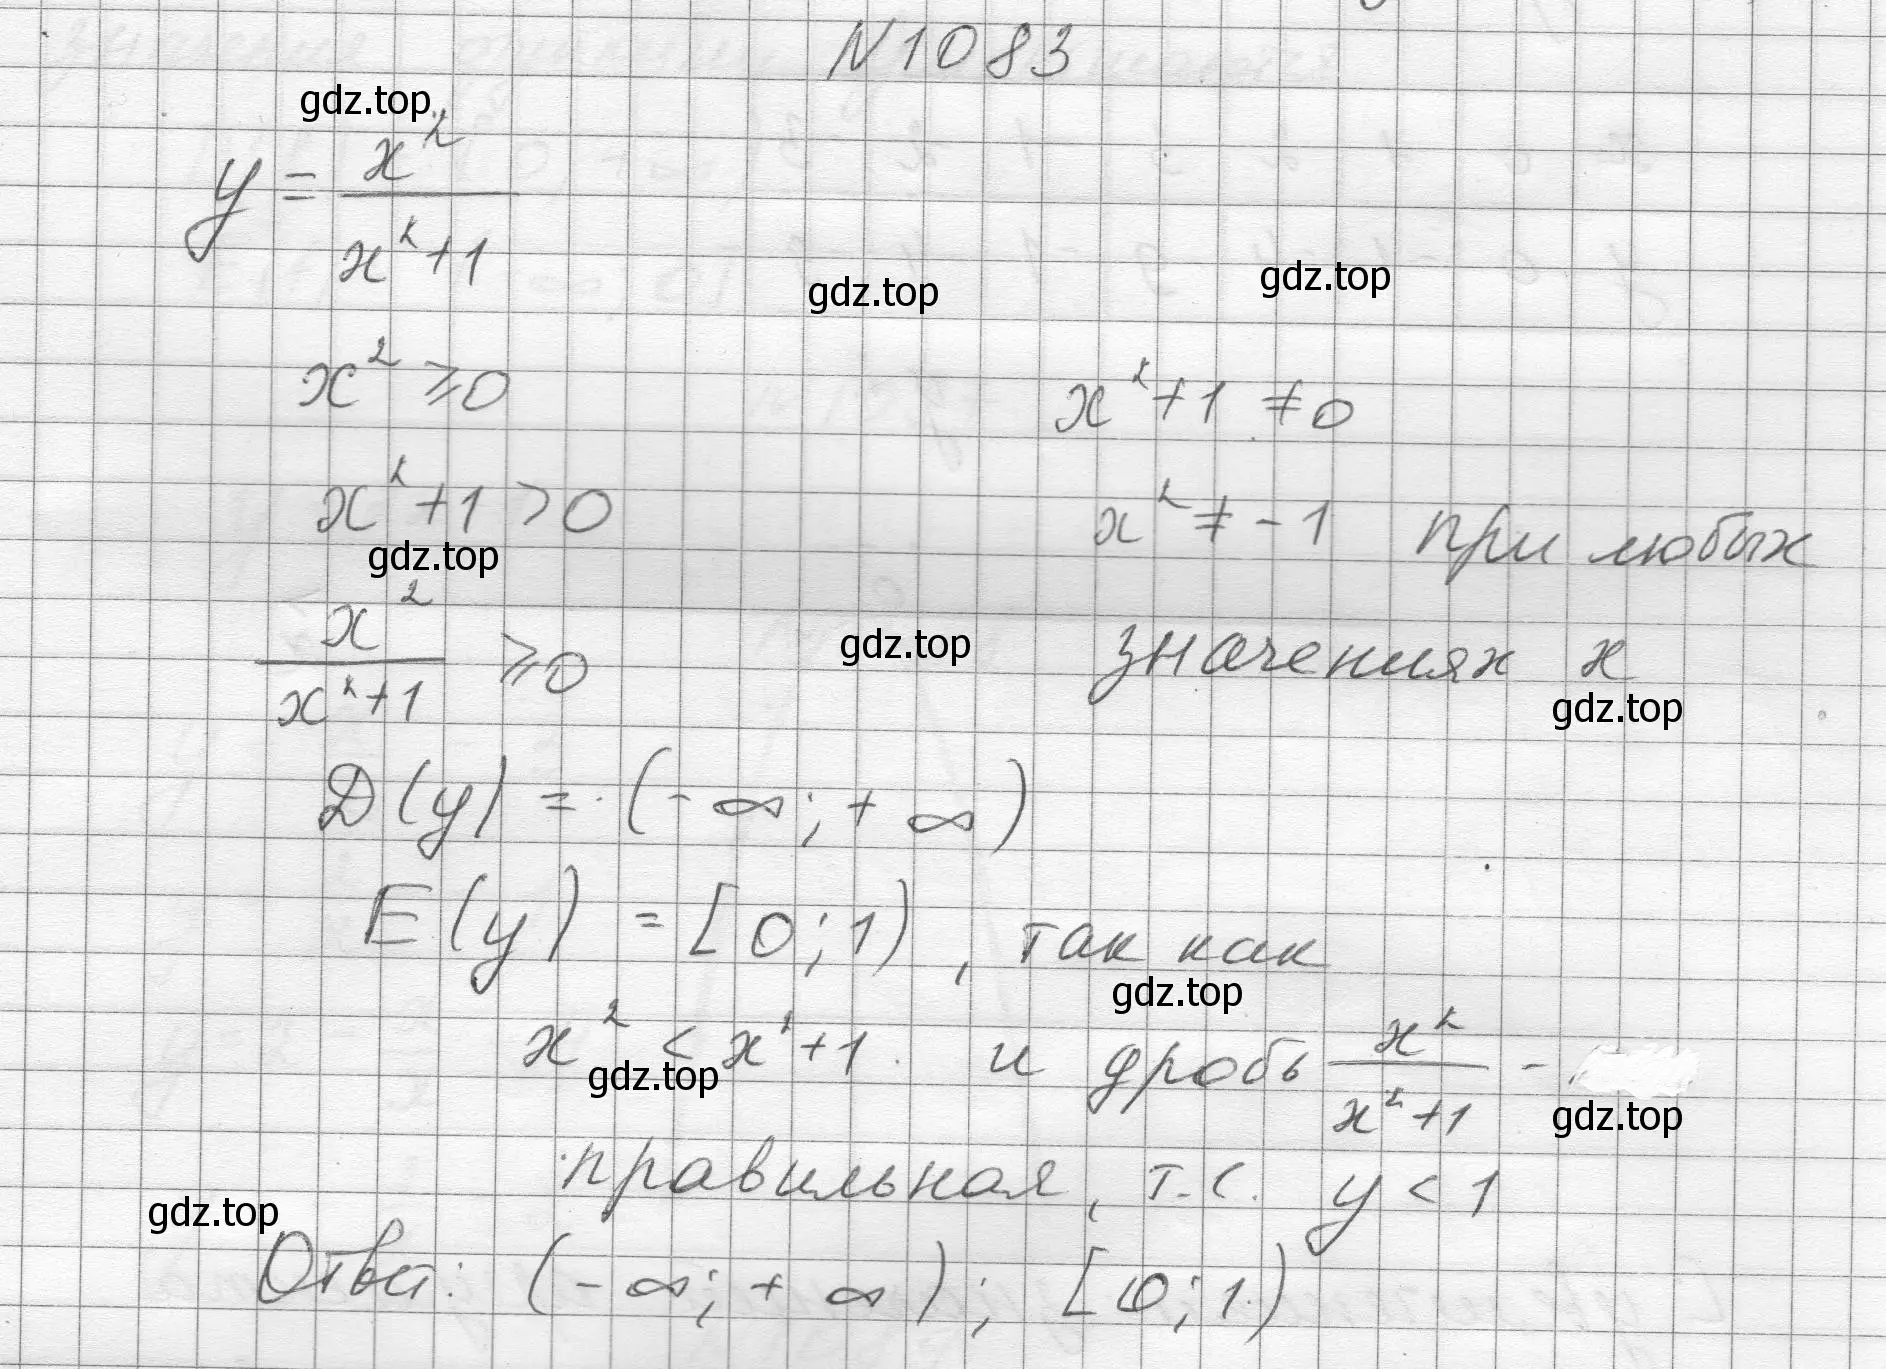 N1083
gdz.top
y = x²/(x²+1)
gdz.top
gdz.top
x² ⩾ 0
x²+1 ≠ 0
x²+1 > 0
x² ≠ -1 при любых
gdz.top
x²/(x²+1) ⩾ 0
gdz.top
значениях x
gdz.top
D(y) = (-∞; +∞)
E(y) = [0; 1), так как
gdz.top
x² < x²+1 и дробь x²/(x²+1) -
gdz.top
gdz.top
правильная, т.е. y < 1
gdz.top
Ответ: (-∞; +∞); [0; 1)